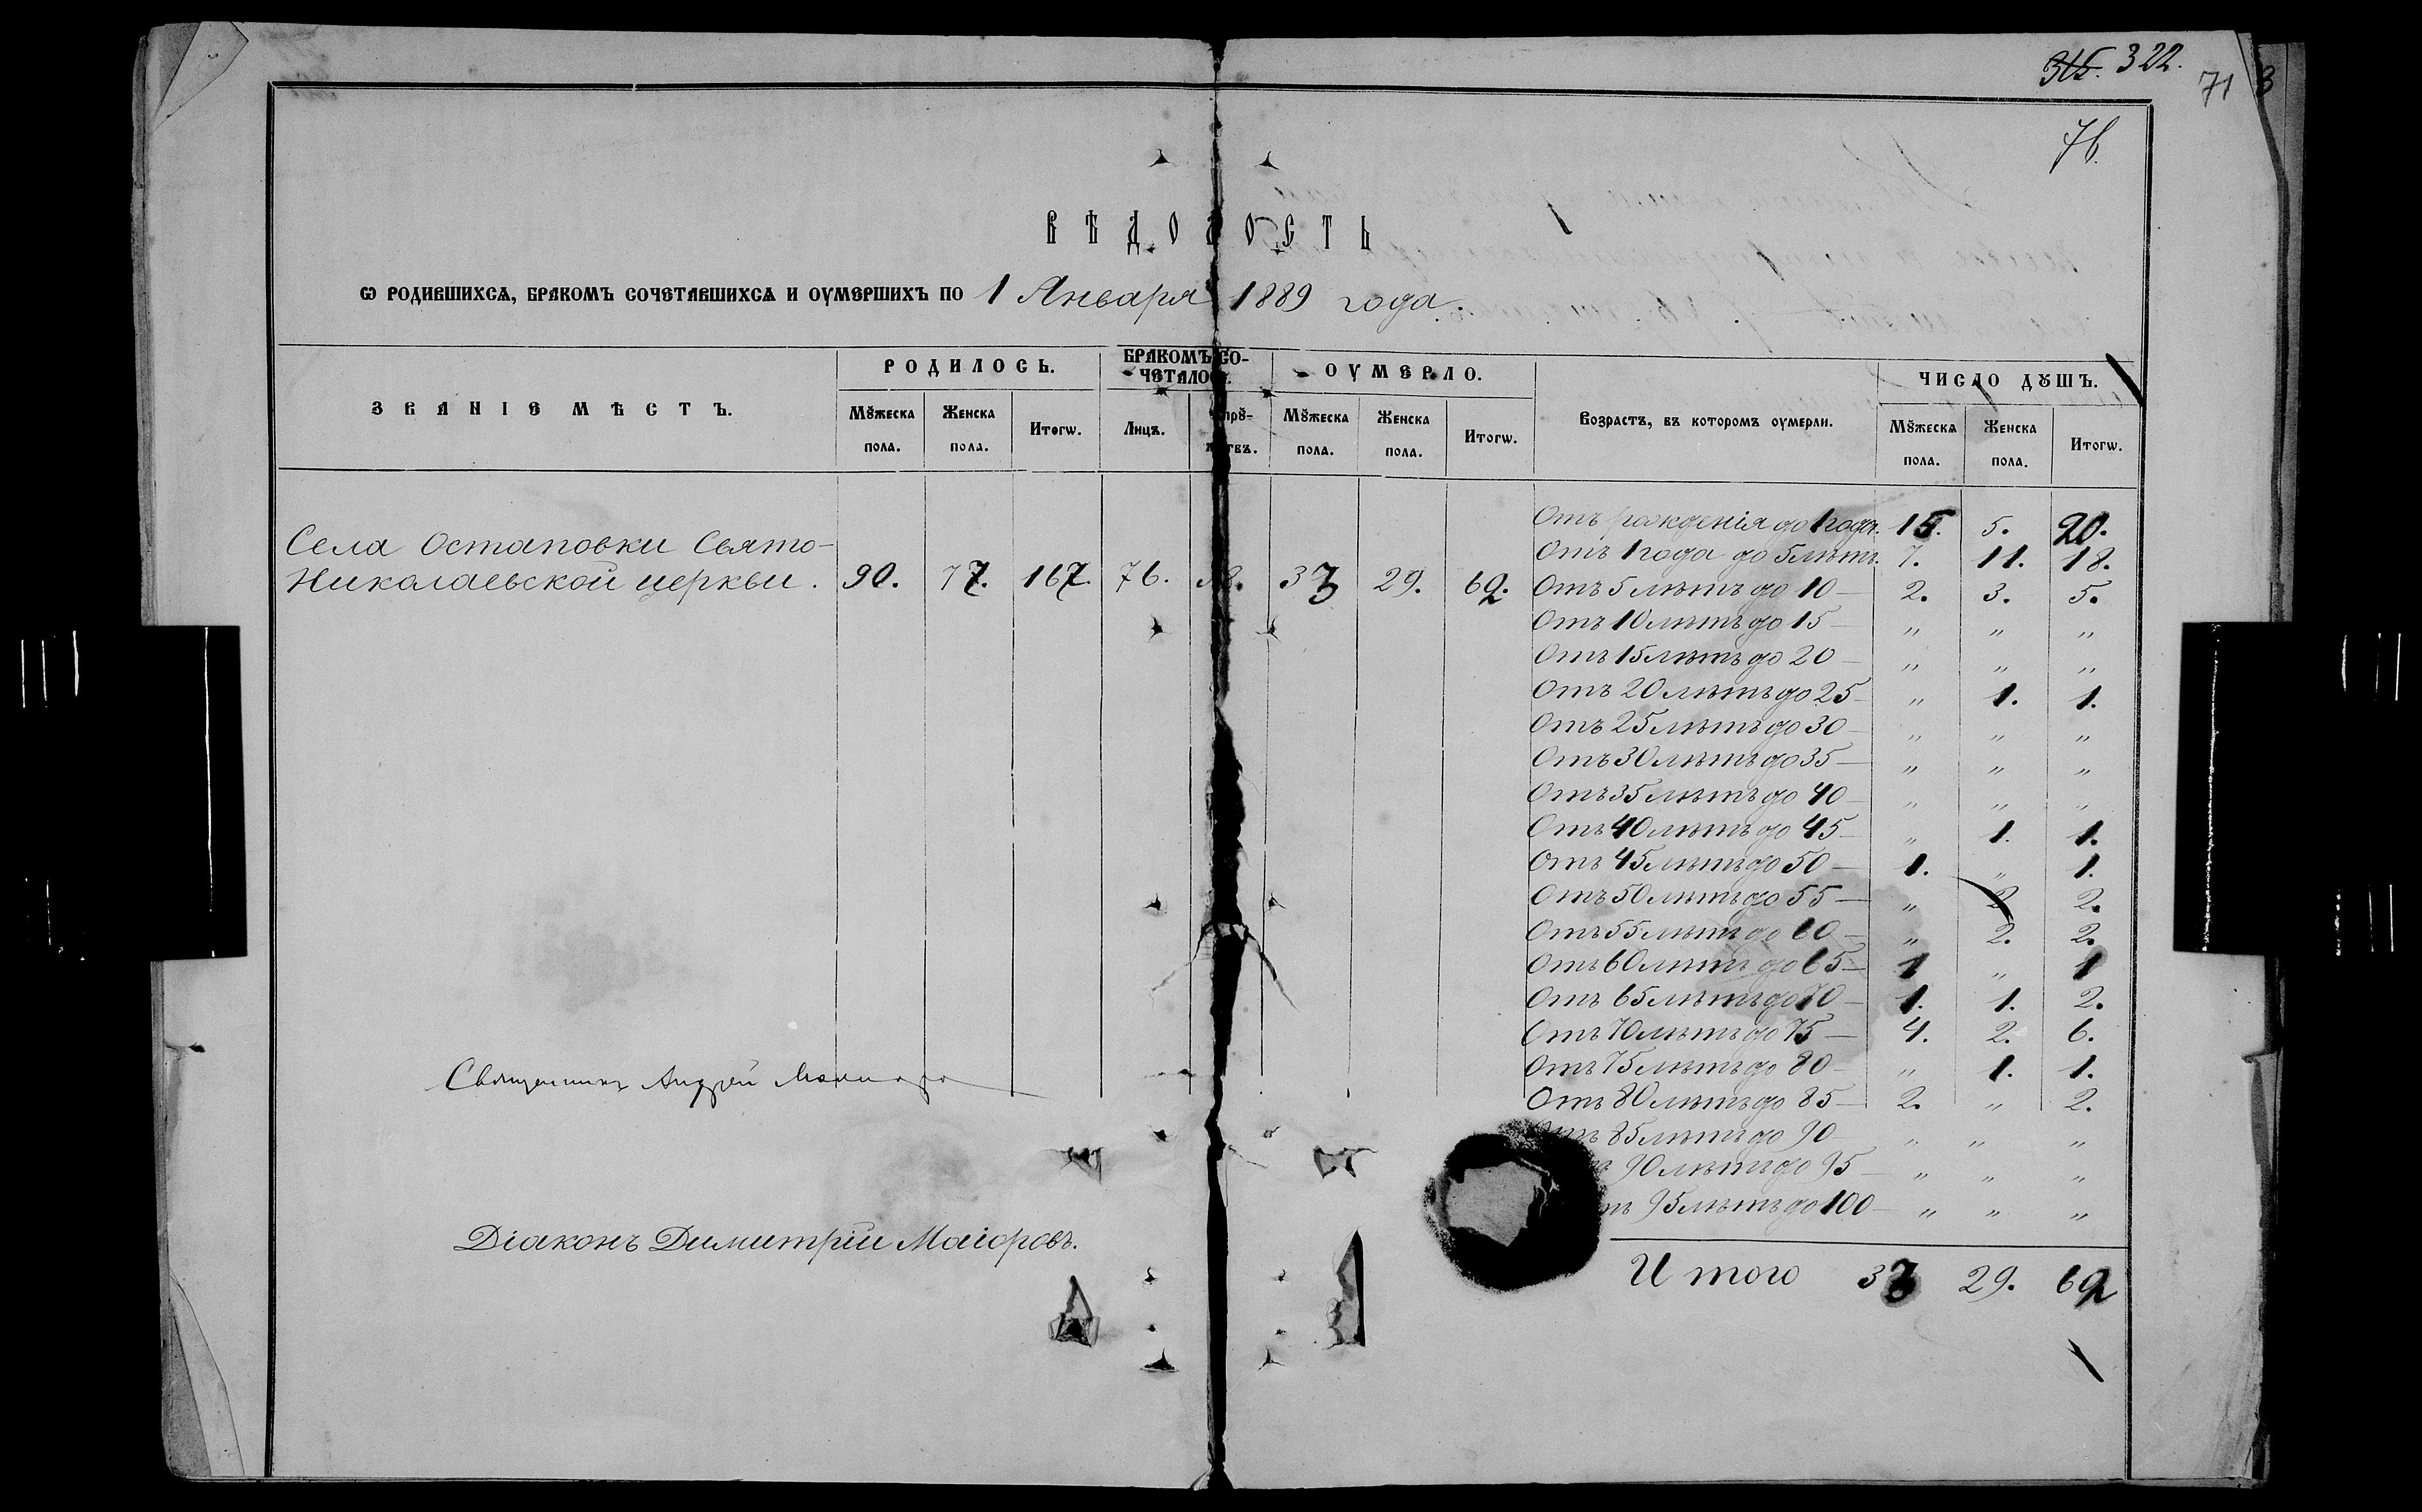 315. 322.
71
76.
ВѢДОМОСТЬ
Ѡ РОДИВШИХСѦ, БРАКОМЪ СОЧЕТАВШИХСѦ И ОУМЕРШИХЪ ПО 1 Января 1889 года.
ЗВАНІЕ МѢСТЪ.
РОДИЛОСЬ.
Мꙋжеска пола.
Женска пола.
Итогѡ.
БРАКОМЪ СО-
ЧЕТАЛО
Лицъ.
ОУМЕРЛО.
Мꙋжеска пола.
Женска пола.
Итогѡ.
Возрастъ, въ котором оумерли.
ЧИСЛО ДꙊШЪ.
Мꙋжеска пола.
Женска пола.
Итогѡ.
Села Остаповки Свято-
Николаевской церкви. 90. 77. 167. 76. 33 29. 62.
Отъ рожденія до 1 года. 15. 5. 20.
Отъ 1 года до 5 лѣтъ. 7. 11. 18.
Отъ 5 лѣтъ до 10 — 2. 3. 5.
Отъ 10 лѣтъ до 15 — „ „ „
Отъ 15 лѣтъ до 20 — „ „ „
Отъ 20 лѣтъ до 25 — „ 1. 1.
Отъ 25 лѣтъ до 30 — „ „ „
Отъ 30 лѣтъ до 35 — „ „ „
Отъ 35 лѣтъ до 40 — „ „ „
Отъ 40 лѣтъ до 45 — „ 1. 1.
Отъ 45 лѣтъ до 50 — 1. „ 1.
Отъ 50 лѣтъ до 55 — „ 2 2.
Отъ 55 лѣтъ до 60 — „ 2. 2.
Отъ 60 лѣтъ до 65 — 1 „ 1
Отъ 65 лѣтъ до 70 — 1. 1. 2.
Отъ 70 лѣтъ до 75 — 4. 2. 6.
Отъ 75 лѣтъ до 80 — „ 1. 1.
Отъ 80 лѣтъ до 85 — 2. „ 2.
Отъ 85 лѣтъ до 90 „ „ „
90 лѣтъ до 95 — „ „ „
95 лѣтъ до 100 — „ „ „
Итого 33 29. 62
Священникъ Андрей
Діаконъ Димитрій Маіоровъ.